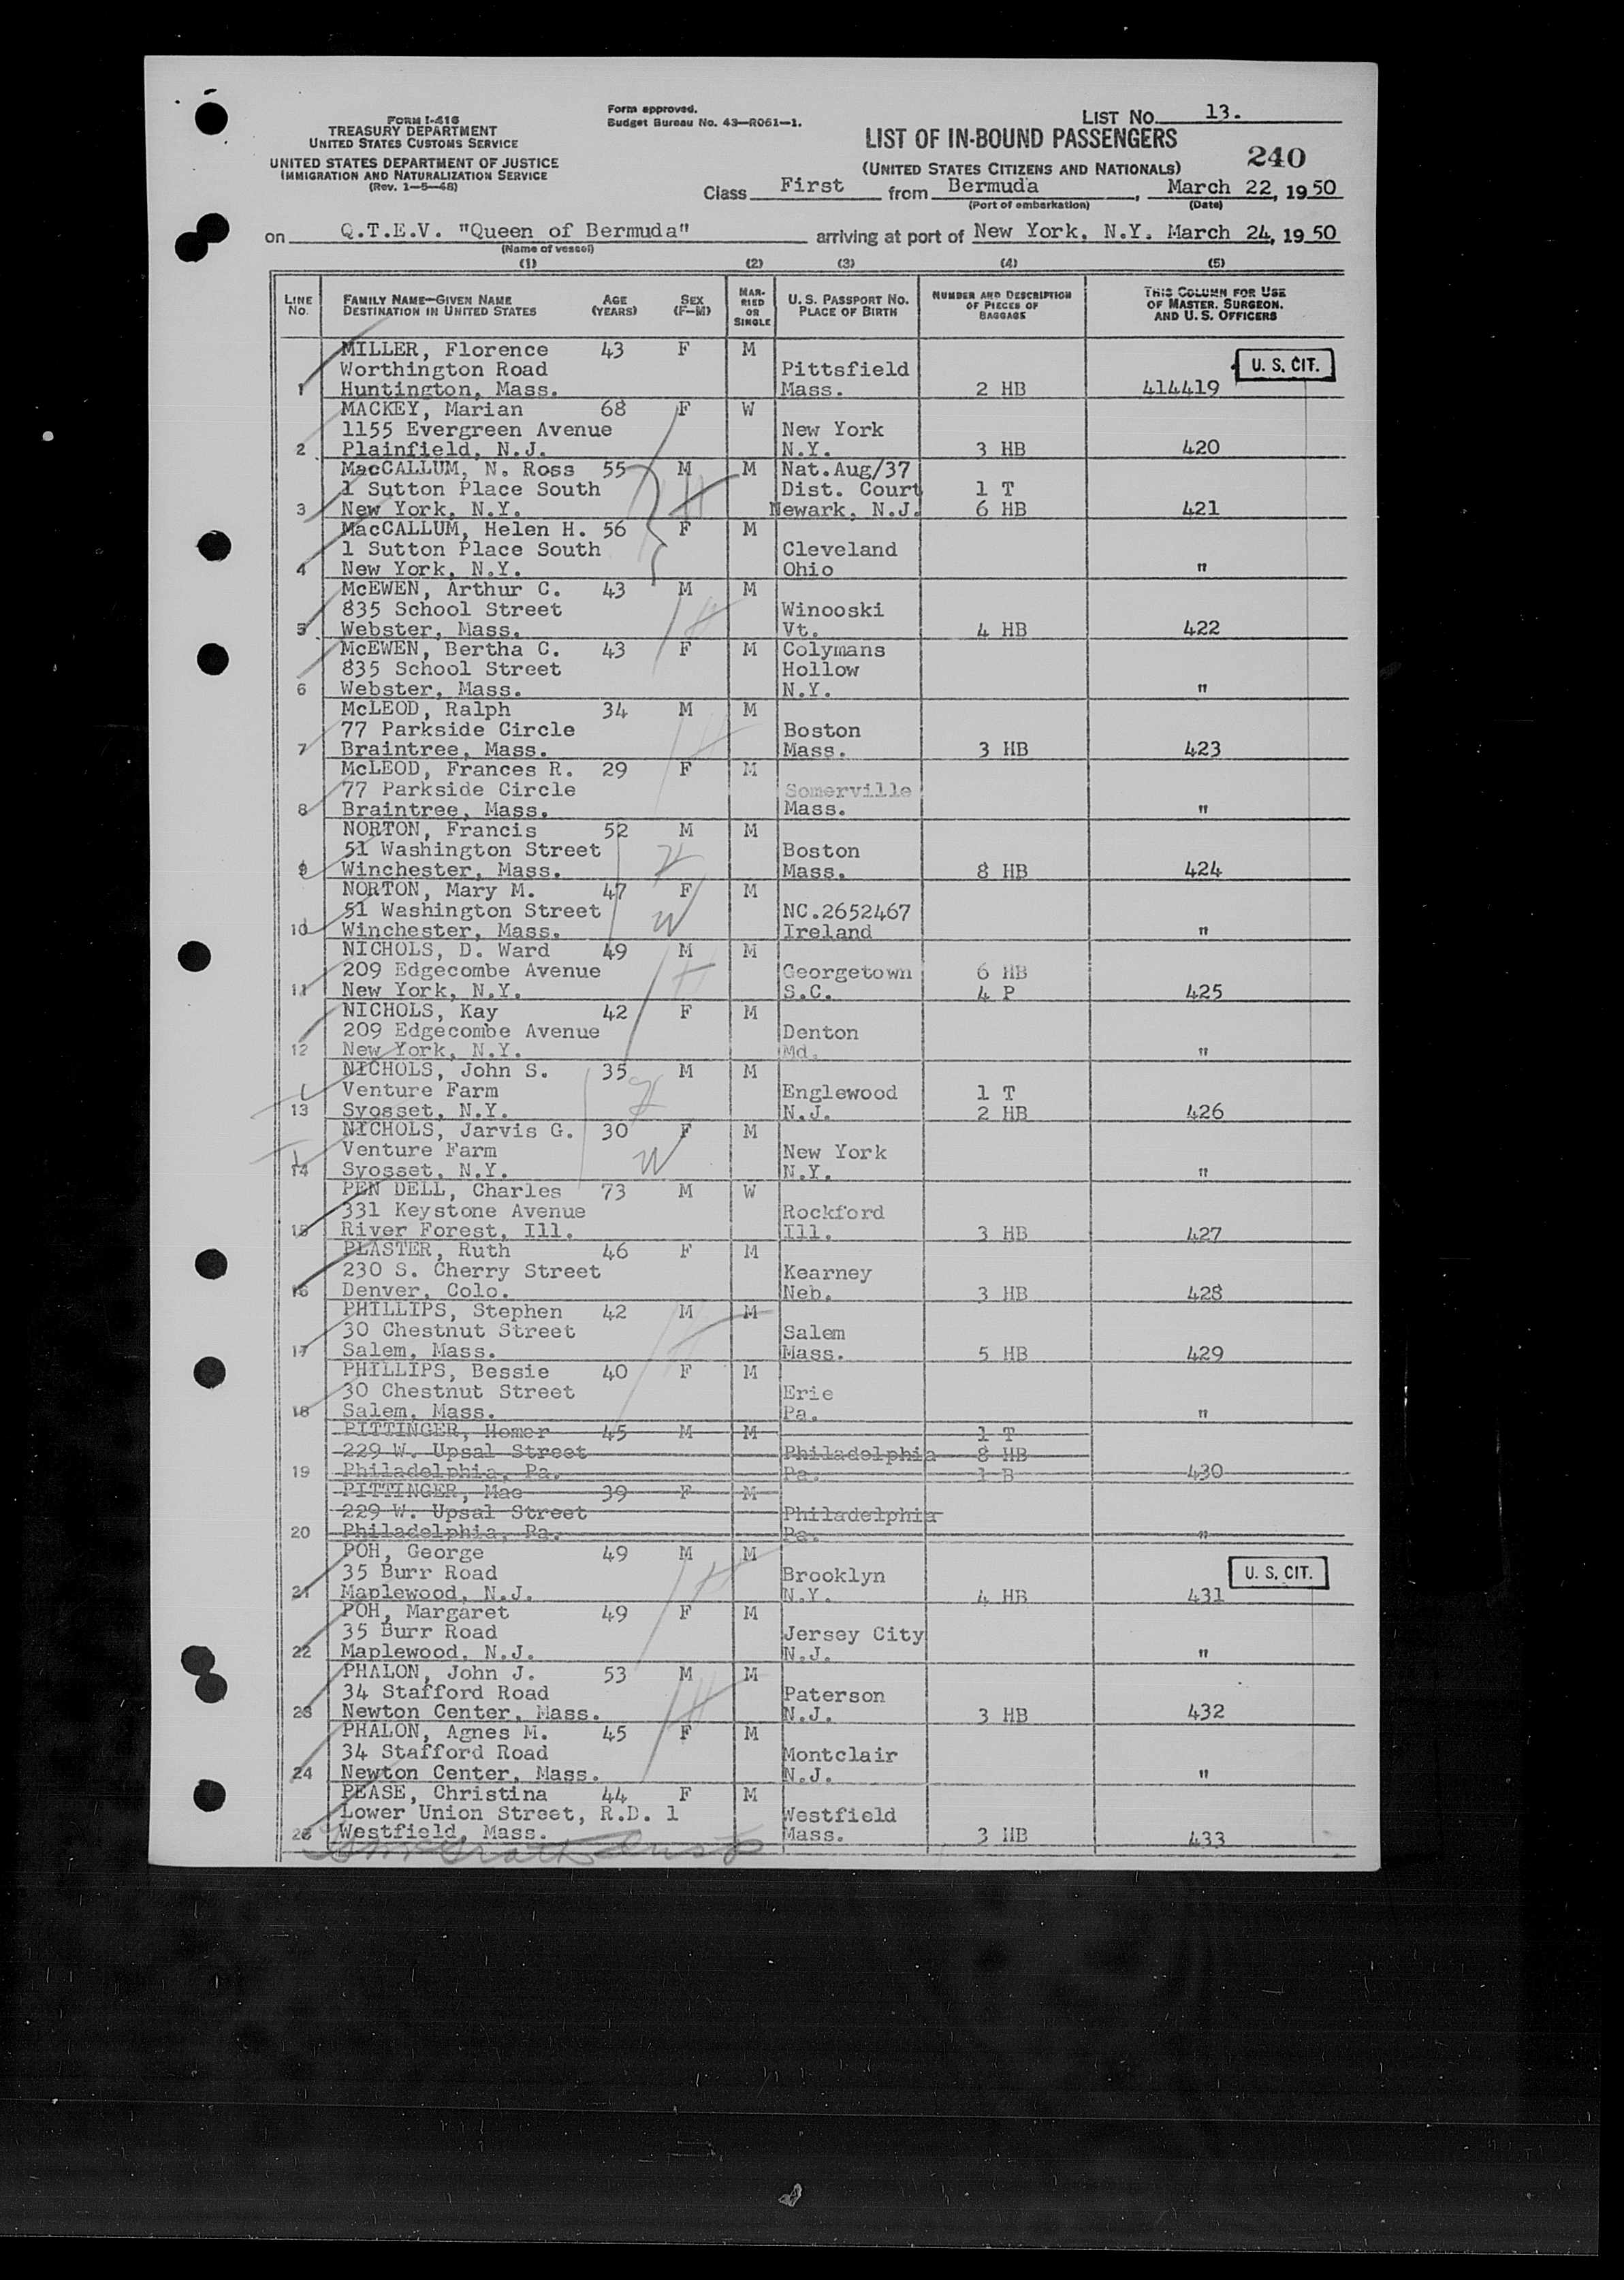 FORM I-416
TREASURY DEPARTMENT
UNITED STATES CUSTOMS SERVICE
UNITED STATES DEPARTMENT OF JUSTICE
IMMIGRATION AND NATURALIZATION SERVICE
(Rev. 1-5-48)
Form approved.
Budget Bureau No. 43-R061-1.
LIST No. 13.
LIST OF IN-BOUND PASSENGERS
(UNITED STATES CITIZENS AND NATIONALS)
240
Class First from Bermuda, March 22, 1950
(Port of embarkation) (Date)
on Q.T.E.V. "Queen of Bermuda" arriving at port of New York, N.Y. March 24, 1950
(Name of vessel)
(1) (2) (3) (4) (5)
LINE No. FAMILY NAME-GIVEN NAME DESTINATION IN UNITED STATES AGE (YEARS) SEX (F-M) MARRIED OR SINGLE U. S. PASSPORT NO. PLACE OF BIRTH NUMBER AND DESCRIPTION OF PIECES OF BAGGAGE THIS COLUMN FOR USE OF MASTER, SURGEON, AND U. S. OFFICERS
MILLER, Florence 43 F M
Worthington Road Pittsfield U. S. CIT.
1 Huntington, Mass. Mass. 2 HB 414419
MACKEY, Marian 68 F W
1155 Evergreen Avenue New York
2 Plainfield, N.J. N.Y. 3 HB 420
MacCALLUM, N. Ross 55 M M Nat.Aug/37
1 Sutton Place South Dist. Court 1 T
3 New York, N.Y. Newark, N.J. 6 HB 421
MacCALLUM, Helen H. 56 F M
1 Sutton Place South Cleveland
4 New York, N.Y. Ohio "
McEWEN, Arthur C. 43 M M
835 School Street Winooski
5 Webster, Mass. Vt. 4 HB 422
McEWEN, Bertha C. 43 F M Colymans
835 School Street Hollow
6 Webster, Mass. N.Y. "
McLEOD, Ralph 34 M M
77 Parkside Circle Boston
7 Braintree, Mass. Mass. 3 HB 423
McLEOD, Frances R. 29 F M
77 Parkside Circle Somerville
8 Braintree, Mass. Mass. "
NORTON, Francis 52 M M
51 Washington Street Boston
9 Winchester, Mass. Mass. 8 HB 424
NORTON, Mary M. 47 F M
51 Washington Street NC.2652467
10 Winchester, Mass. Ireland "
NICHOLS, D. Ward 49 M M
209 Edgecombe Avenue Georgetown 6 HB
11 New York, N.Y. S.C. 4 P 425
NICHOLS, Kay 42 F M
209 Edgecombe Avenue Denton
12 New York, N.Y. Md. "
NICHOLS, John S. 35 M M
Venture Farm Englewood 1 T
13 Syosset, N.Y. N.J. 2 HB 426
NICHOLS, Jarvis G. 30 F M
Venture Farm New York
14 Syosset, N.Y. N.Y. "
PEN DELL, Charles 73 M W
331 Keystone Avenue Rockford
15 River Forest, Ill. Ill. 3 HB 427
PLASTER, Ruth 46 F M
230 S. Cherry Street Kearney
16 Denver, Colo. Neb. 3 HB 428
PHILLIPS, Stephen 42 M M
30 Chestnut Street Salem
17 Salem, Mass. Mass. 5 HB 429
PHILLIPS, Bessie 40 F M
30 Chestnut Street Erie
18 Salem, Mass. Pa. "
PITTINGER, Homer 45 M M 1 T
229 W. Upsal Street Philadelphia 8 HB
19 Philadelphia, Pa. Pa. 1 B 430
PITTINGER, Mae 39 F M
229 W. Upsal Street Philadelphia
20 Philadelphia, Pa. Pa. "
POH, George 49 M M
35 Burr Road Brooklyn U. S. CIT.
21 Maplewood, N.J. N.Y. 4 HB 431
POH, Margaret 49 F M
35 Burr Road Jersey City
22 Maplewood, N.J. N.J. "
PHALON, John J. 53 M M
34 Stafford Road Paterson
23 Newton Center, Mass. N.J. 3 HB 432
PHALON, Agnes M. 45 F M
34 Stafford Road Montclair
24 Newton Center, Mass. N.J. "
PEASE, Christina 44 F M
Lower Union Street, R.D. 1 Westfield
25 Westfield, Mass. Mass. 3 HB 433